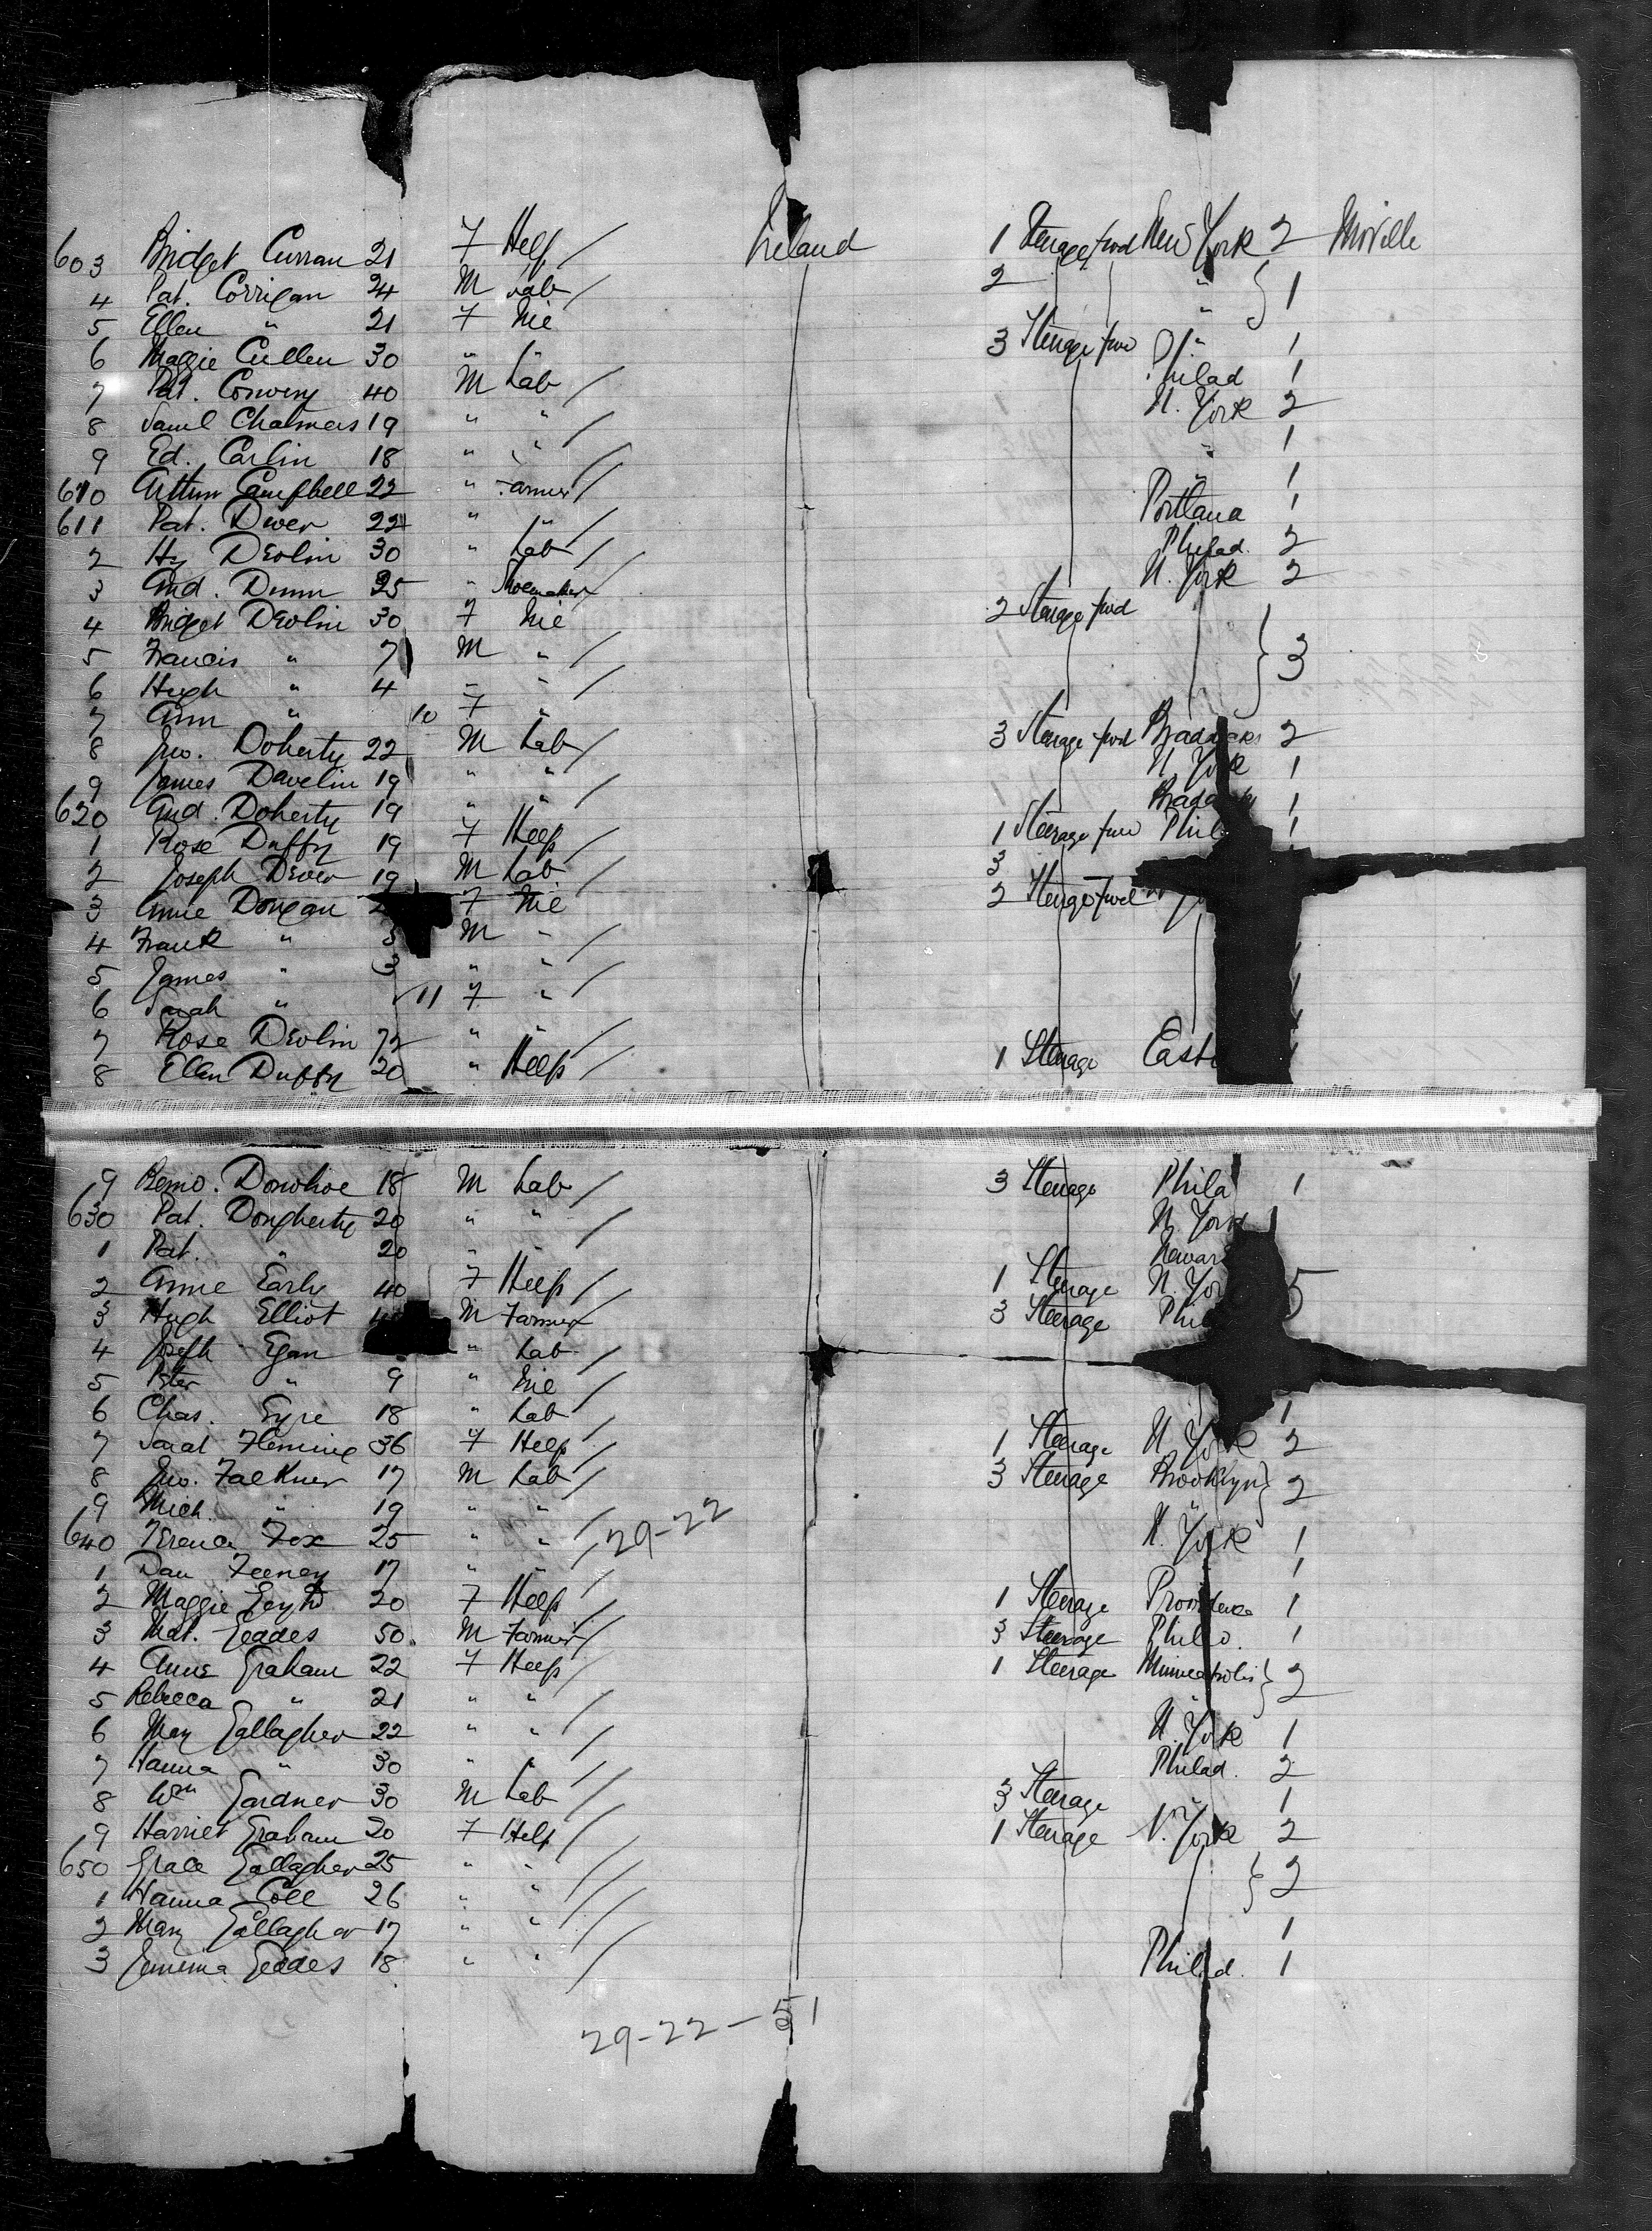 603 Bridget Curran 21 F Help / Ireland 1 Steerage fwd New York 2 Moville
4 Pat. Corrigan 24 M Lab / 2 " 1
5 Ellen " 21 F Nie "
6 Maggie Cullen 30 " " 3 Steerage fwd " 1
7 Pat. Convery 40 M Lab / Philad 1
8 Saml Chalmers 19 " " / N. York 2
9 Ed. Carlin 18 " " / " 1
610 Arthur Campbell 22 " Farmer / " 1
611 Pat. Diver 22 " " / Portland 1
2 Hy Devlin 30 " Lab / Philad. 2
3 And. Dunn 25 " Shoemaker / N. York 2
4 Bridget Devlin 30 F Nie 2 Steerage fwd
5 Francis " 7 M " / 3
6 Hugh " 4 " " /
7 Ann " 10 F "
8 Jno. Doherty 22 M Lab / 3 Steerage fwd Braddocks 2
9 James Davelin 19 " " / N. York 1
620 And. Doherty 19 " " / 1
1 Rose Duffy 19 F Help / 1 Steerage fwd Phil 1
2 Joseph Diver 19 M Lab / 3
3 Annie Dongan F Nie 2 Steerage fwd
4 Frank " M " /
5 James " 3 " " /
6 Sarah " 11 F " /
7 Rose Devlin 72 " " /
8 Ellen Duffy 20 " Help / 1 Steerage East
9 Donohoe 18 M Lab / 3 Steerage Phila 1
630 Pat. Dougherty 20 " " / N. York 1
1 Pat. " 20 " " Newar
2 Annie Early 40 F Help / 1 Steerage N. Yor 5
3 Hugh Elliot M Farmer / 3 Steerage Phi
4 Joseph Egan " Lab /
5 Peter " 9 " Nie /
6 Chas. Eyre 18 " Lab / 1
7 Sarah Fleming 36 F Help / 1 Steerage N. York 2
8 Jno. Falkner 17 M Lab / 3 Steerage Brooklyn 2
9 Mich. " 19 " " / "
640 Terence Fox 25 " " / 29-22 N. York 1
1 Dan Feeney 17 " " / 1
2 Maggie 20 F Help / 1 Steerage Providence 1
3 Mat. Geddes 50 M Farmer / 3 Steerage 1
4 Annie Graham 22 F Help / 1 Steerage Minneapolis 2
5 Rebecca " 21 " " / "
6 Mary Gallagher 22 " " / N. York 1
7 Hanna " 30 " " / Philad. 2
8 Wm Gardner 30 M Lab / 3 Steerage " 1
9 Harriet Graham 20 F Help / 1 Steerage N. York 2
650 Grace Gallagher 25 " " / 2
1 Hanna Coll 26 " " /
2 Mary Gallagher 17 " " / 1
3 Jemima Geddes 18 " " / Philad. 1
29-22-51